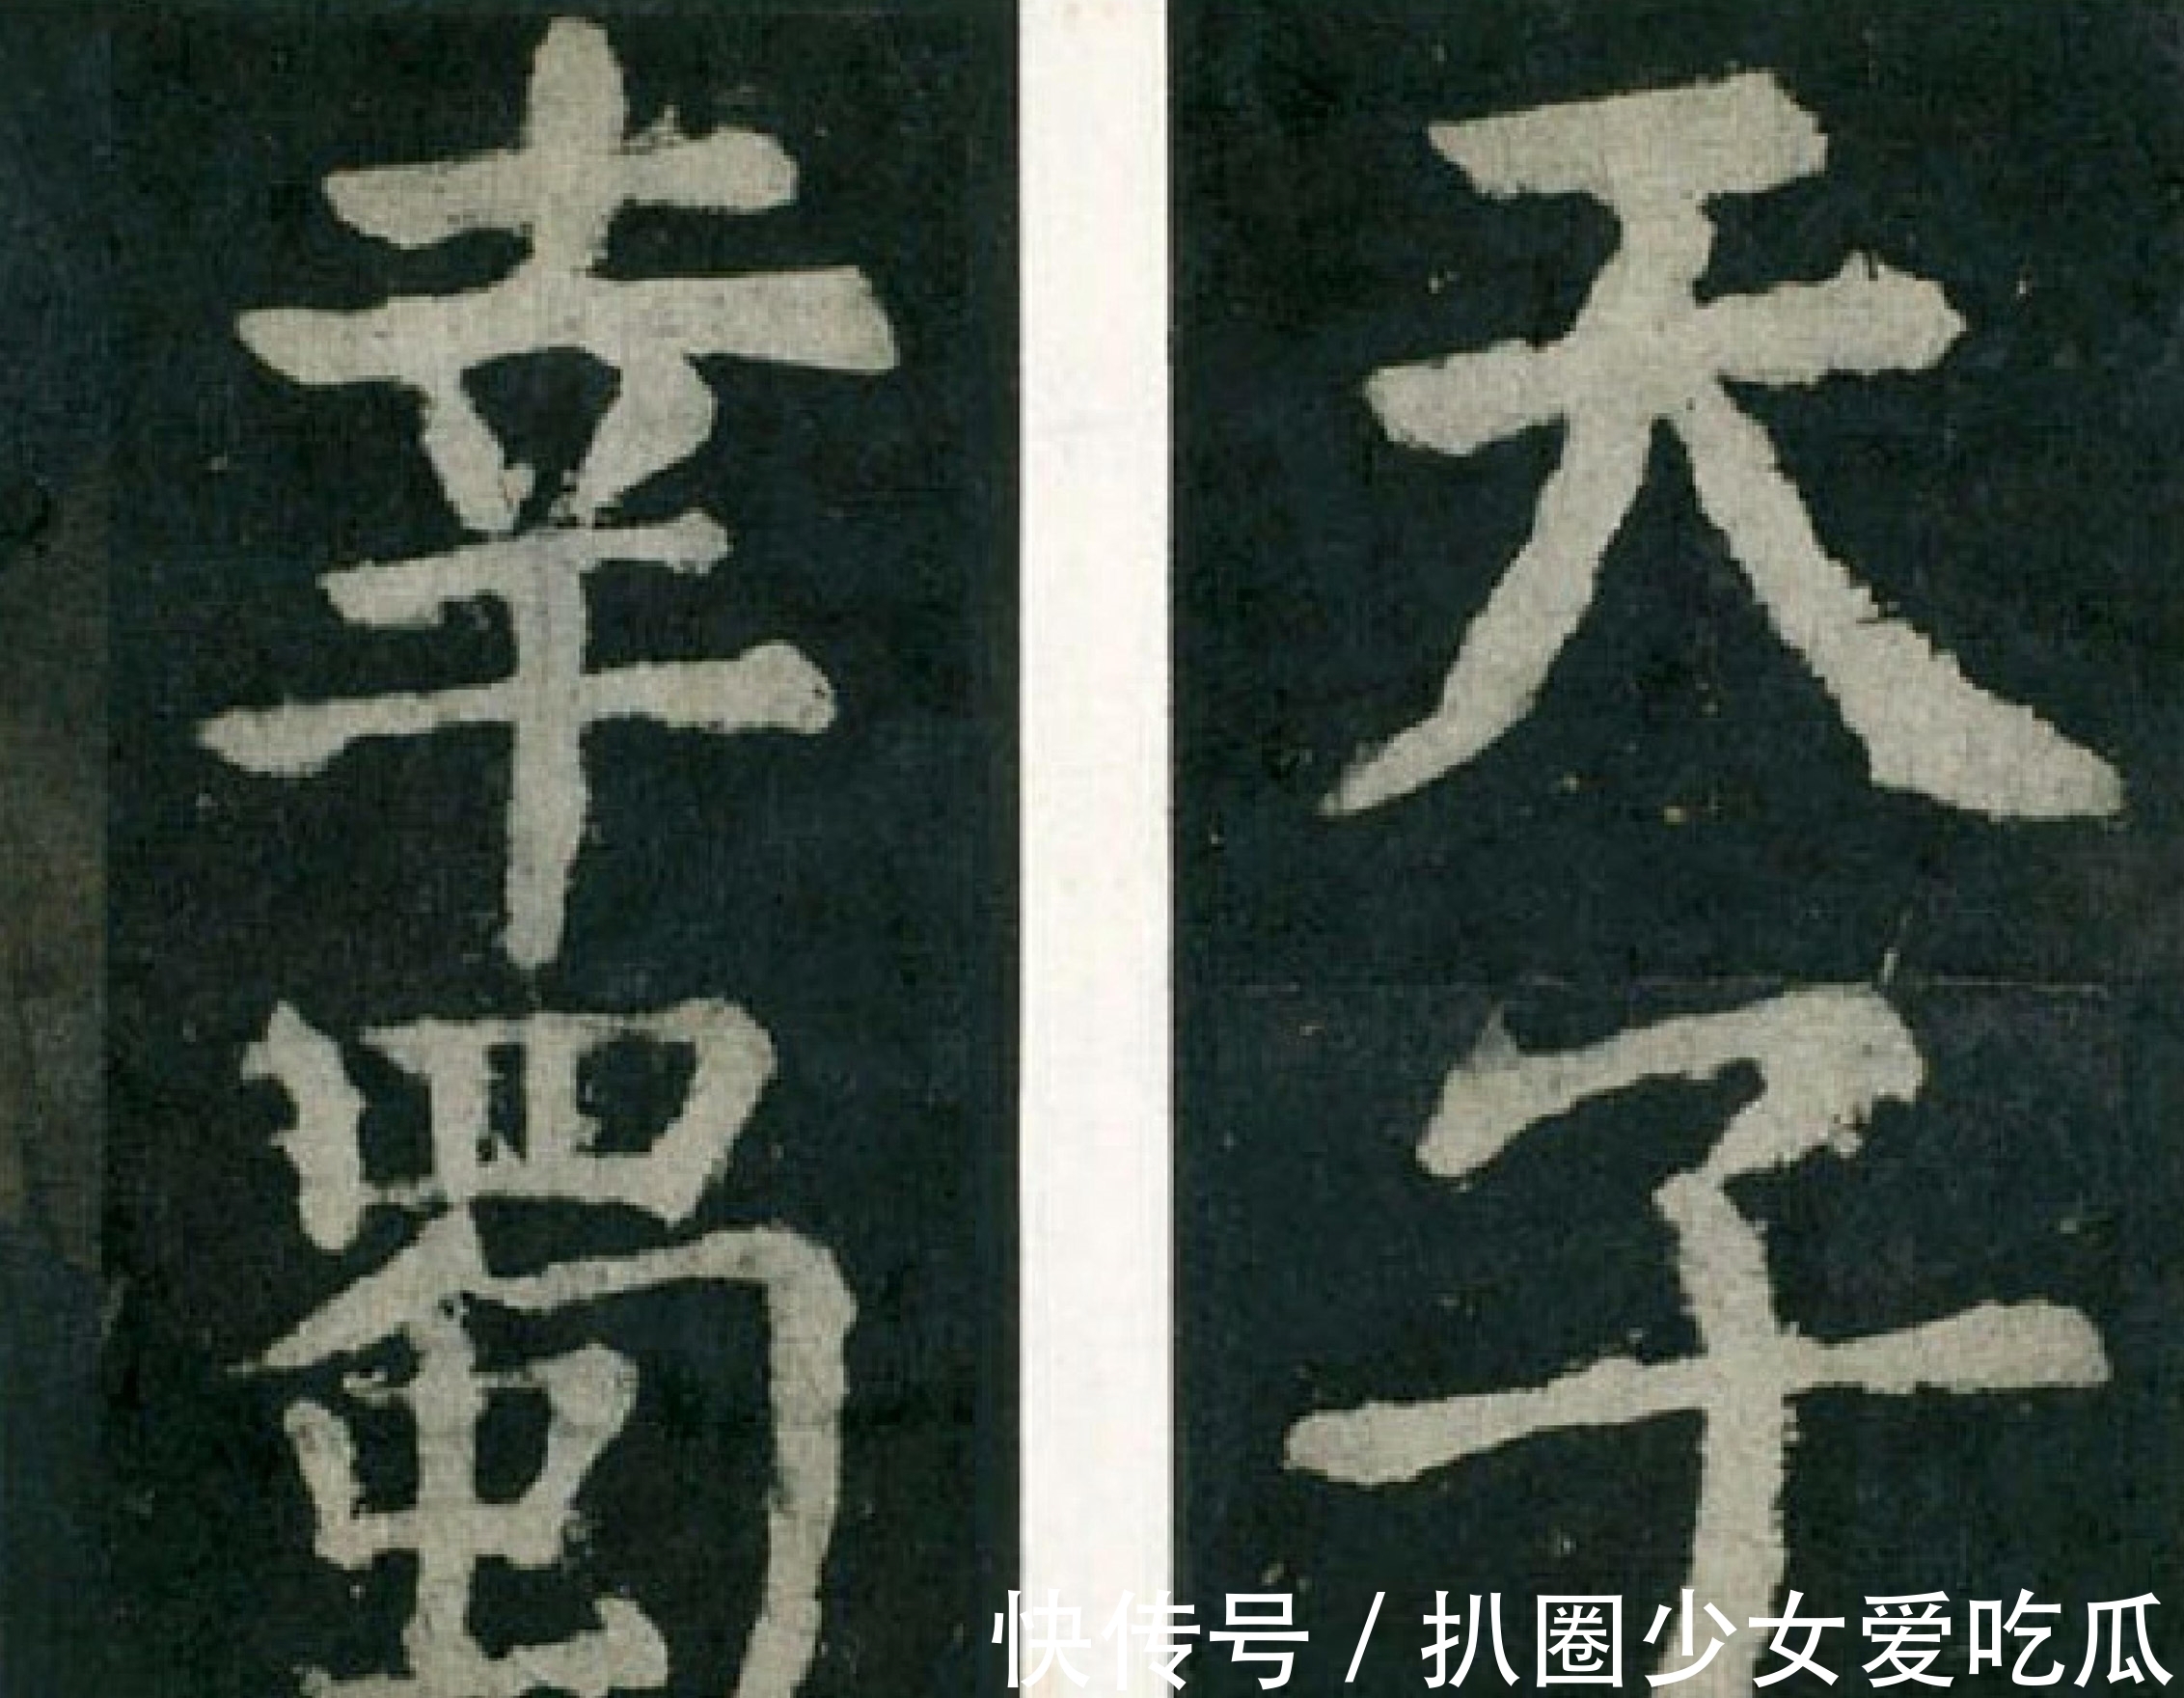 天子
幸蜀
快传号 / 扒圈少女爱吃瓜